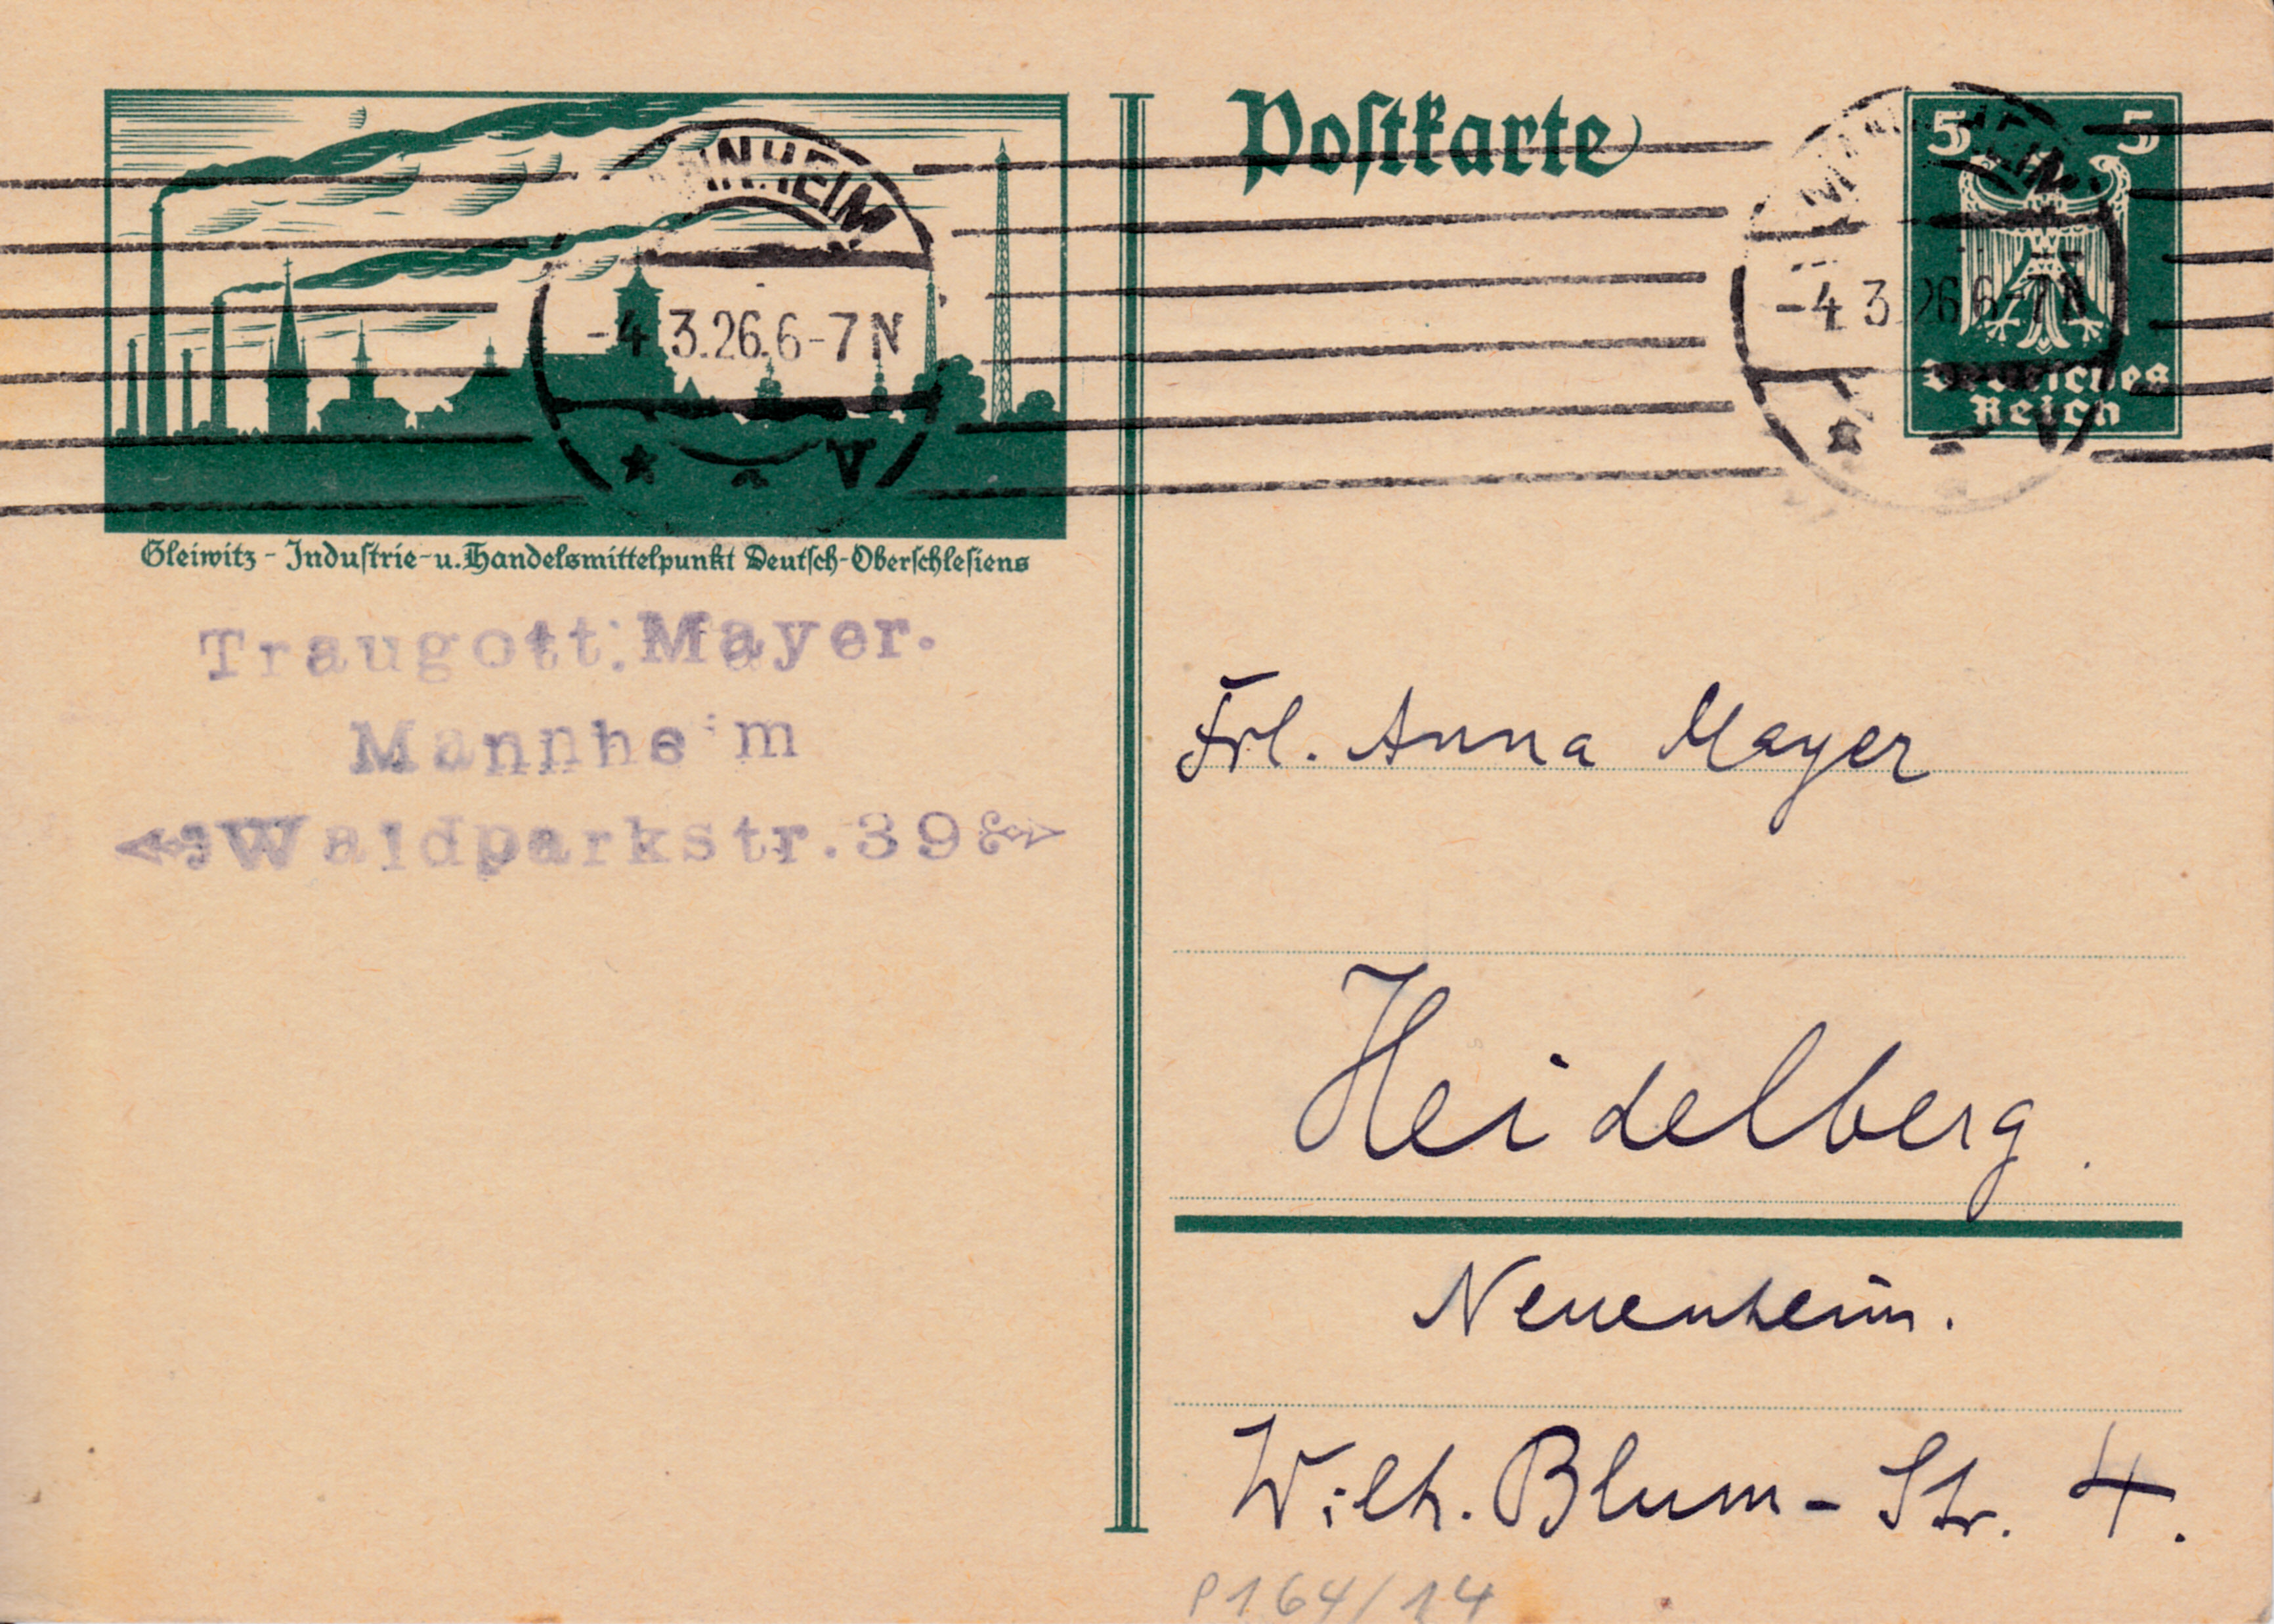 Postkarte
5 5
Deutsches
Reich
MANNHEIM
-4.3.26.6-7N
V
MANNHEIM
-4.3.26.6-7N
V
Gleiwitz - Industrie- u. Handelsmittelpunkt Deutsch-Oberschlesiens
Traugott Mayer.
Mannheim
Waldparkstr. 39
Frl. Anna Mayer
Heidelberg.
Neuenheim.
Wilh. Blum-Str. 4.
P164/14